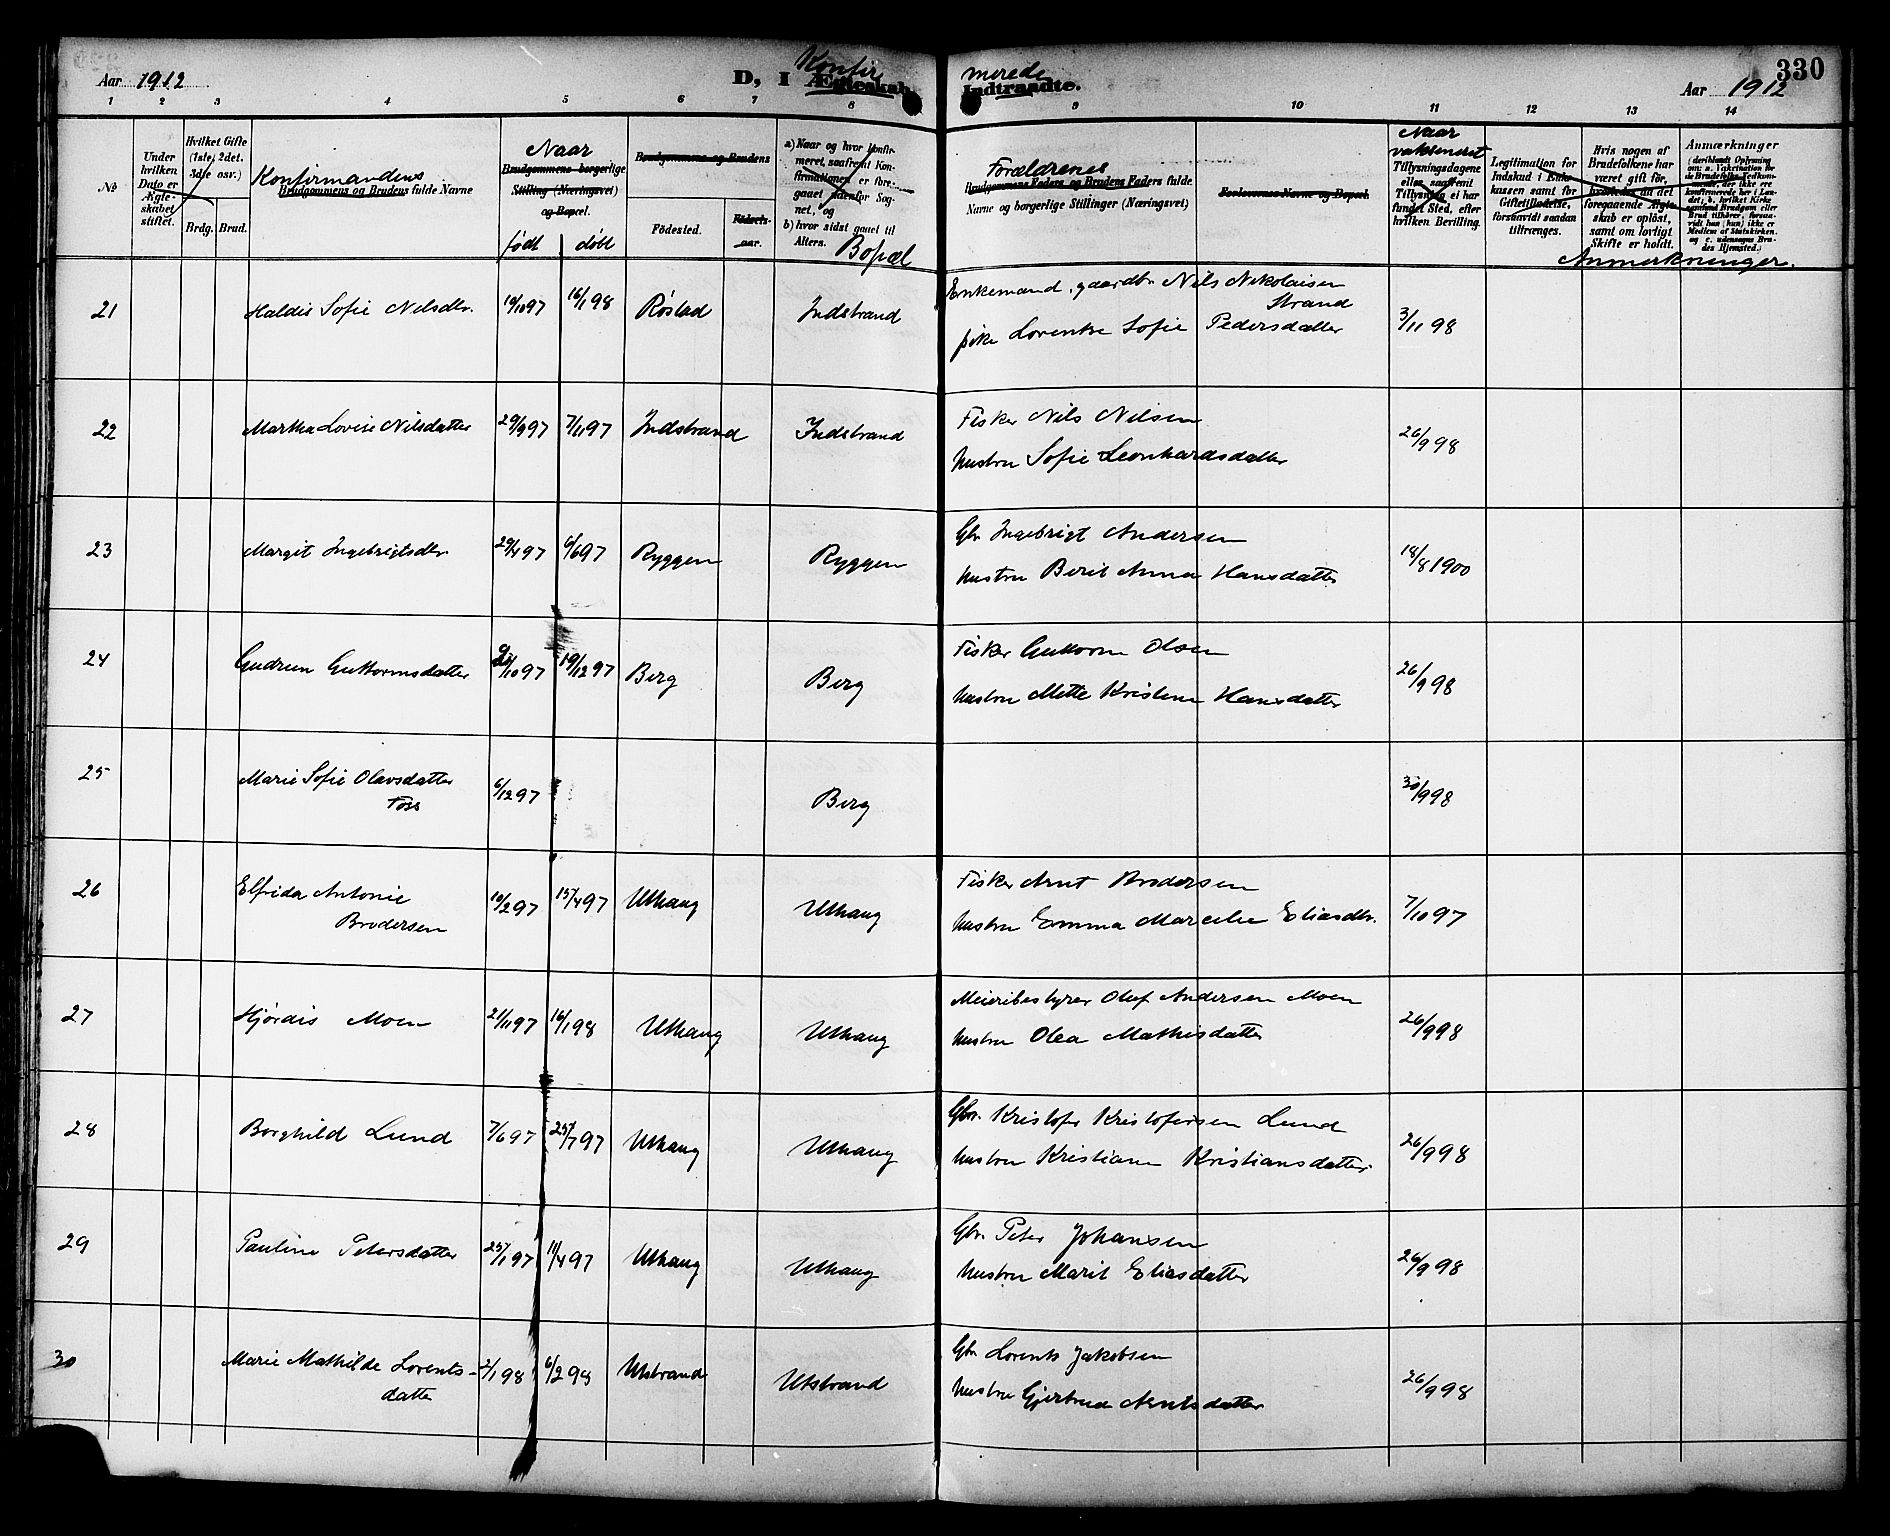 Aar 1912
D, I Ægteskab Indtraadte.
Konfir merede
330
Aar 1912
1 2 3 4 5 6 7 8 9 10 11 12 13 14
№
Under hvilken Dato er Ægteskabet stiftet.
Hvilket Gifte (1ste, 2det. 3die osv.)
Brdg. Brud.
Konfirmandens
Brudgommens og Brudens fulde Navne
Naar
Brudgommens borgerlige Stilling (Næringsvei) og Bopæl.
født døbt
Brudgommens og Brudens
Födested. Födselsaar.
a) Naar og hvor konfirmeret, saafremt Konfirmationen er foregaaet udenfor Sognet, og
b) hvor sidst gaaet til Alters.
Bopæl
Forældrenes
Brudgommens Faders og Brudens Faders fulde Navne og borgerlige Stillinger (Næringsvei)
Forlovernes Navne og Bopæl.
Naar vaksineret
Tillysningsdagene eller, saafremt Tillysning ei har fundet Sted, efter hvilken Bevilling.
Legitimation for Indskud i Enkekassen samt for Giftetilladelse, forsaavidt saadan tiltrænges.
Hvis nogen af Brudefolkene har været gift før, hvorledes da det foregaaende Ægteskab er oplöst, samt om lovligt Skifte er holdt.
Anmærkninger
Anmerkninger.
21 Haldis Sofie Nilsdtr. 19/10 97 16/1 98 Røstad Indstrand Enkemand, gaardbr Nils Nikolaisen Strand
pike Lorentse Sofie Pedersdatter 3/11 98
22 Martha Lovise Nilsdatter 29/9 97 7/11 97 Indstrand Indstrand Fisker Nils Nilsen
hustru Sofie Leonhardsdatter 26/9 98
23 Margit Ingebrigtsdtr 29/4 97 6/6 97 Ryggen Ryggen Gbr Ingebrigt Andersen
hustru Berit Anna Hansdatter 18/8 1900
24 Gudrun Guttormsdatter 10 97 19/12 97 Berg Berg Fisker Guttorm Olsen
hustru Mette Kristine Hansdatter 26/9 98
25 Marie Sofie Olavsdatter
Foss 6/12 97 Berg 30/9 98
26 Elfrida Antonie
Brodersen 10/2 97 15/4 97 Uthaug Uthaug Fisker Arnt Brodersen
hustru Emma Marcelie Eliasdtr. 7/10 97
27 Hjørdis Moen 21/11 97 16/1 98 Uthaug Uthaug Meieribestyrer Oluf Andersen Moen
hustru Olea Mathisdatter 26/9 98
28 Borghild Lund 7/6 97 25/7 97 Uthaug Uthaug Gbr. Kristofer Kristofersen Lund
hustru Kristiane Kristiansdatter. 26/9 98
29 Pauline Petersdatter 25/1 97 11/4 97 Uthaug Uthaug Gbr. Peter Johansen
hustru Marit Eliasdatter 26/9 98
30 Marie Mathilde Lorents-
datter 2/1 98 6/2 98 Utstrand Utstrand Gbr Lorents Jakobsen
hustru Gjertrud Arntsdatter 26/9 98